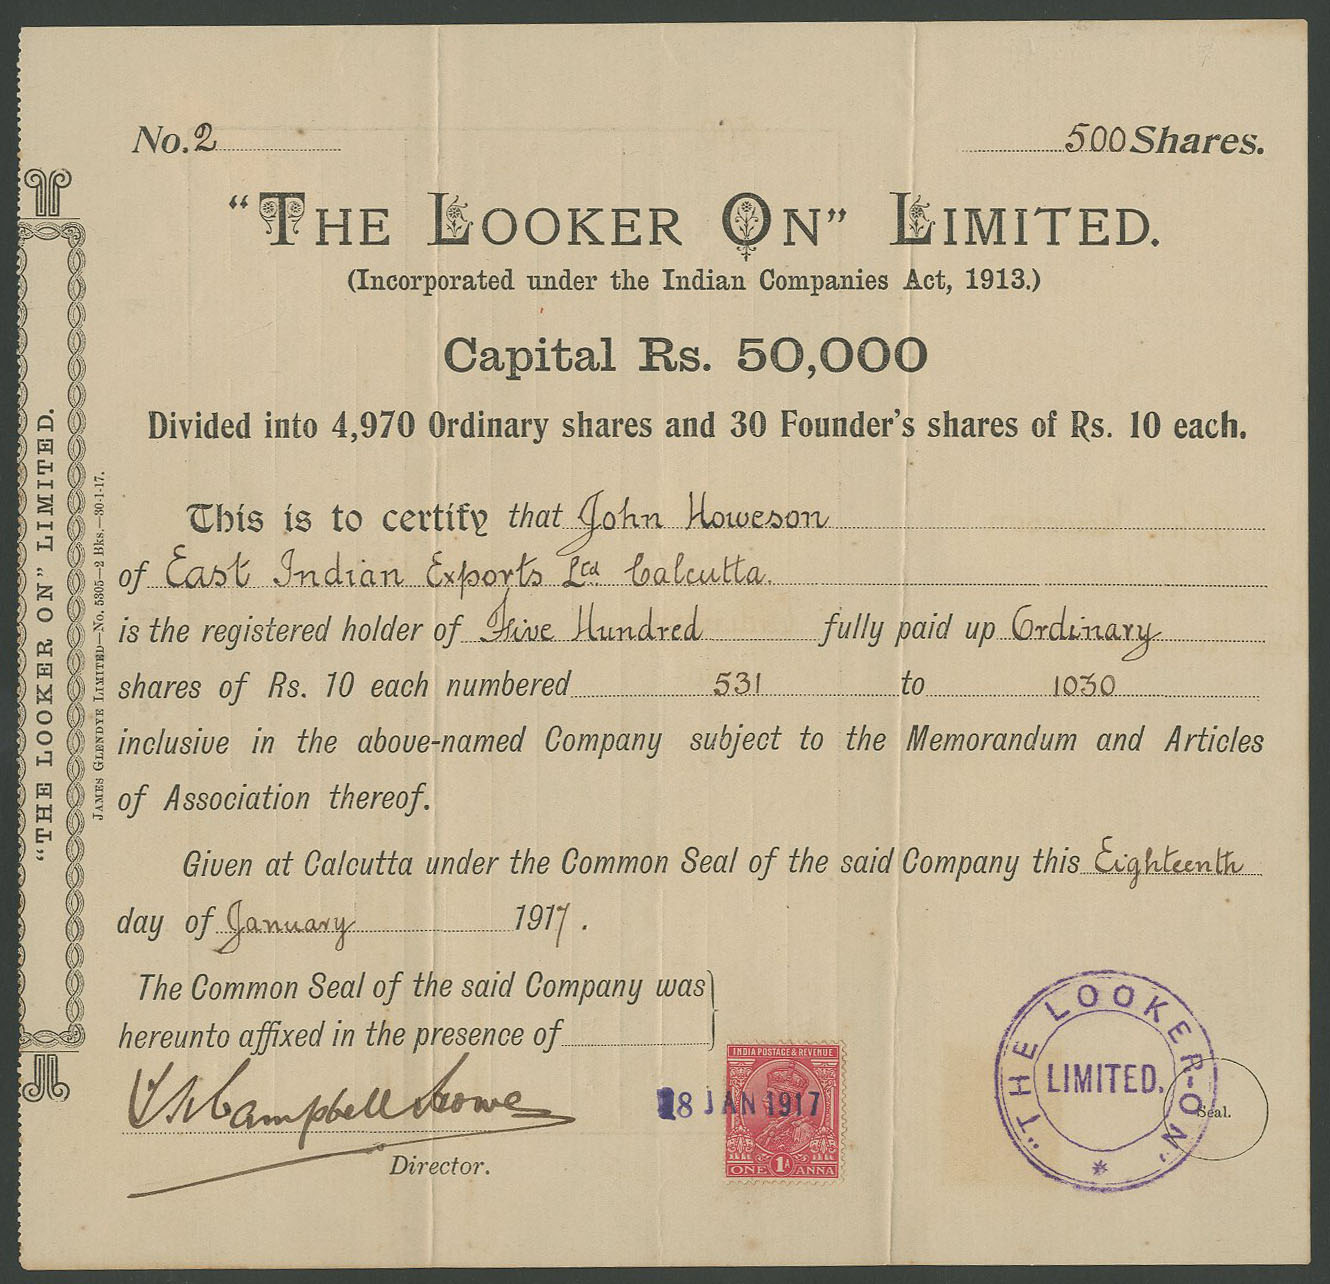 No. 2
500 Shares.
"THE LOOKER ON" LIMITED.
(Incorporated under the Indian Companies Act, 1913.)
Capital Rs. 50,000
Divided into 4,970 Ordinary shares and 30 Founder's shares of Rs. 10 each.
This is to certify that John Howeson
of East Indian Exports Ltd Calcutta.
is the registered holder of Five Hundred fully paid up Ordinary
shares of Rs. 10 each numbered 531 to 1030
inclusive in the above-named Company subject to the Memorandum and Articles
of Association thereof.
Given at Calcutta under the Common Seal of the said Company this Eighteenth
day of January 1917.
The Common Seal of the said Company was
hereunto affixed in the presence of
Campbell
Director.
INDIA POSTAGE & REVENUE
18 JAN 1917
ONE 1A ANNA
"THE LOOKER-ON"
LIMITED.
Seal.
"THE LOOKER ON" LIMITED.
JAMES GLENDYE LIMITED—No. 5305—2 Bks.—30-1-17.